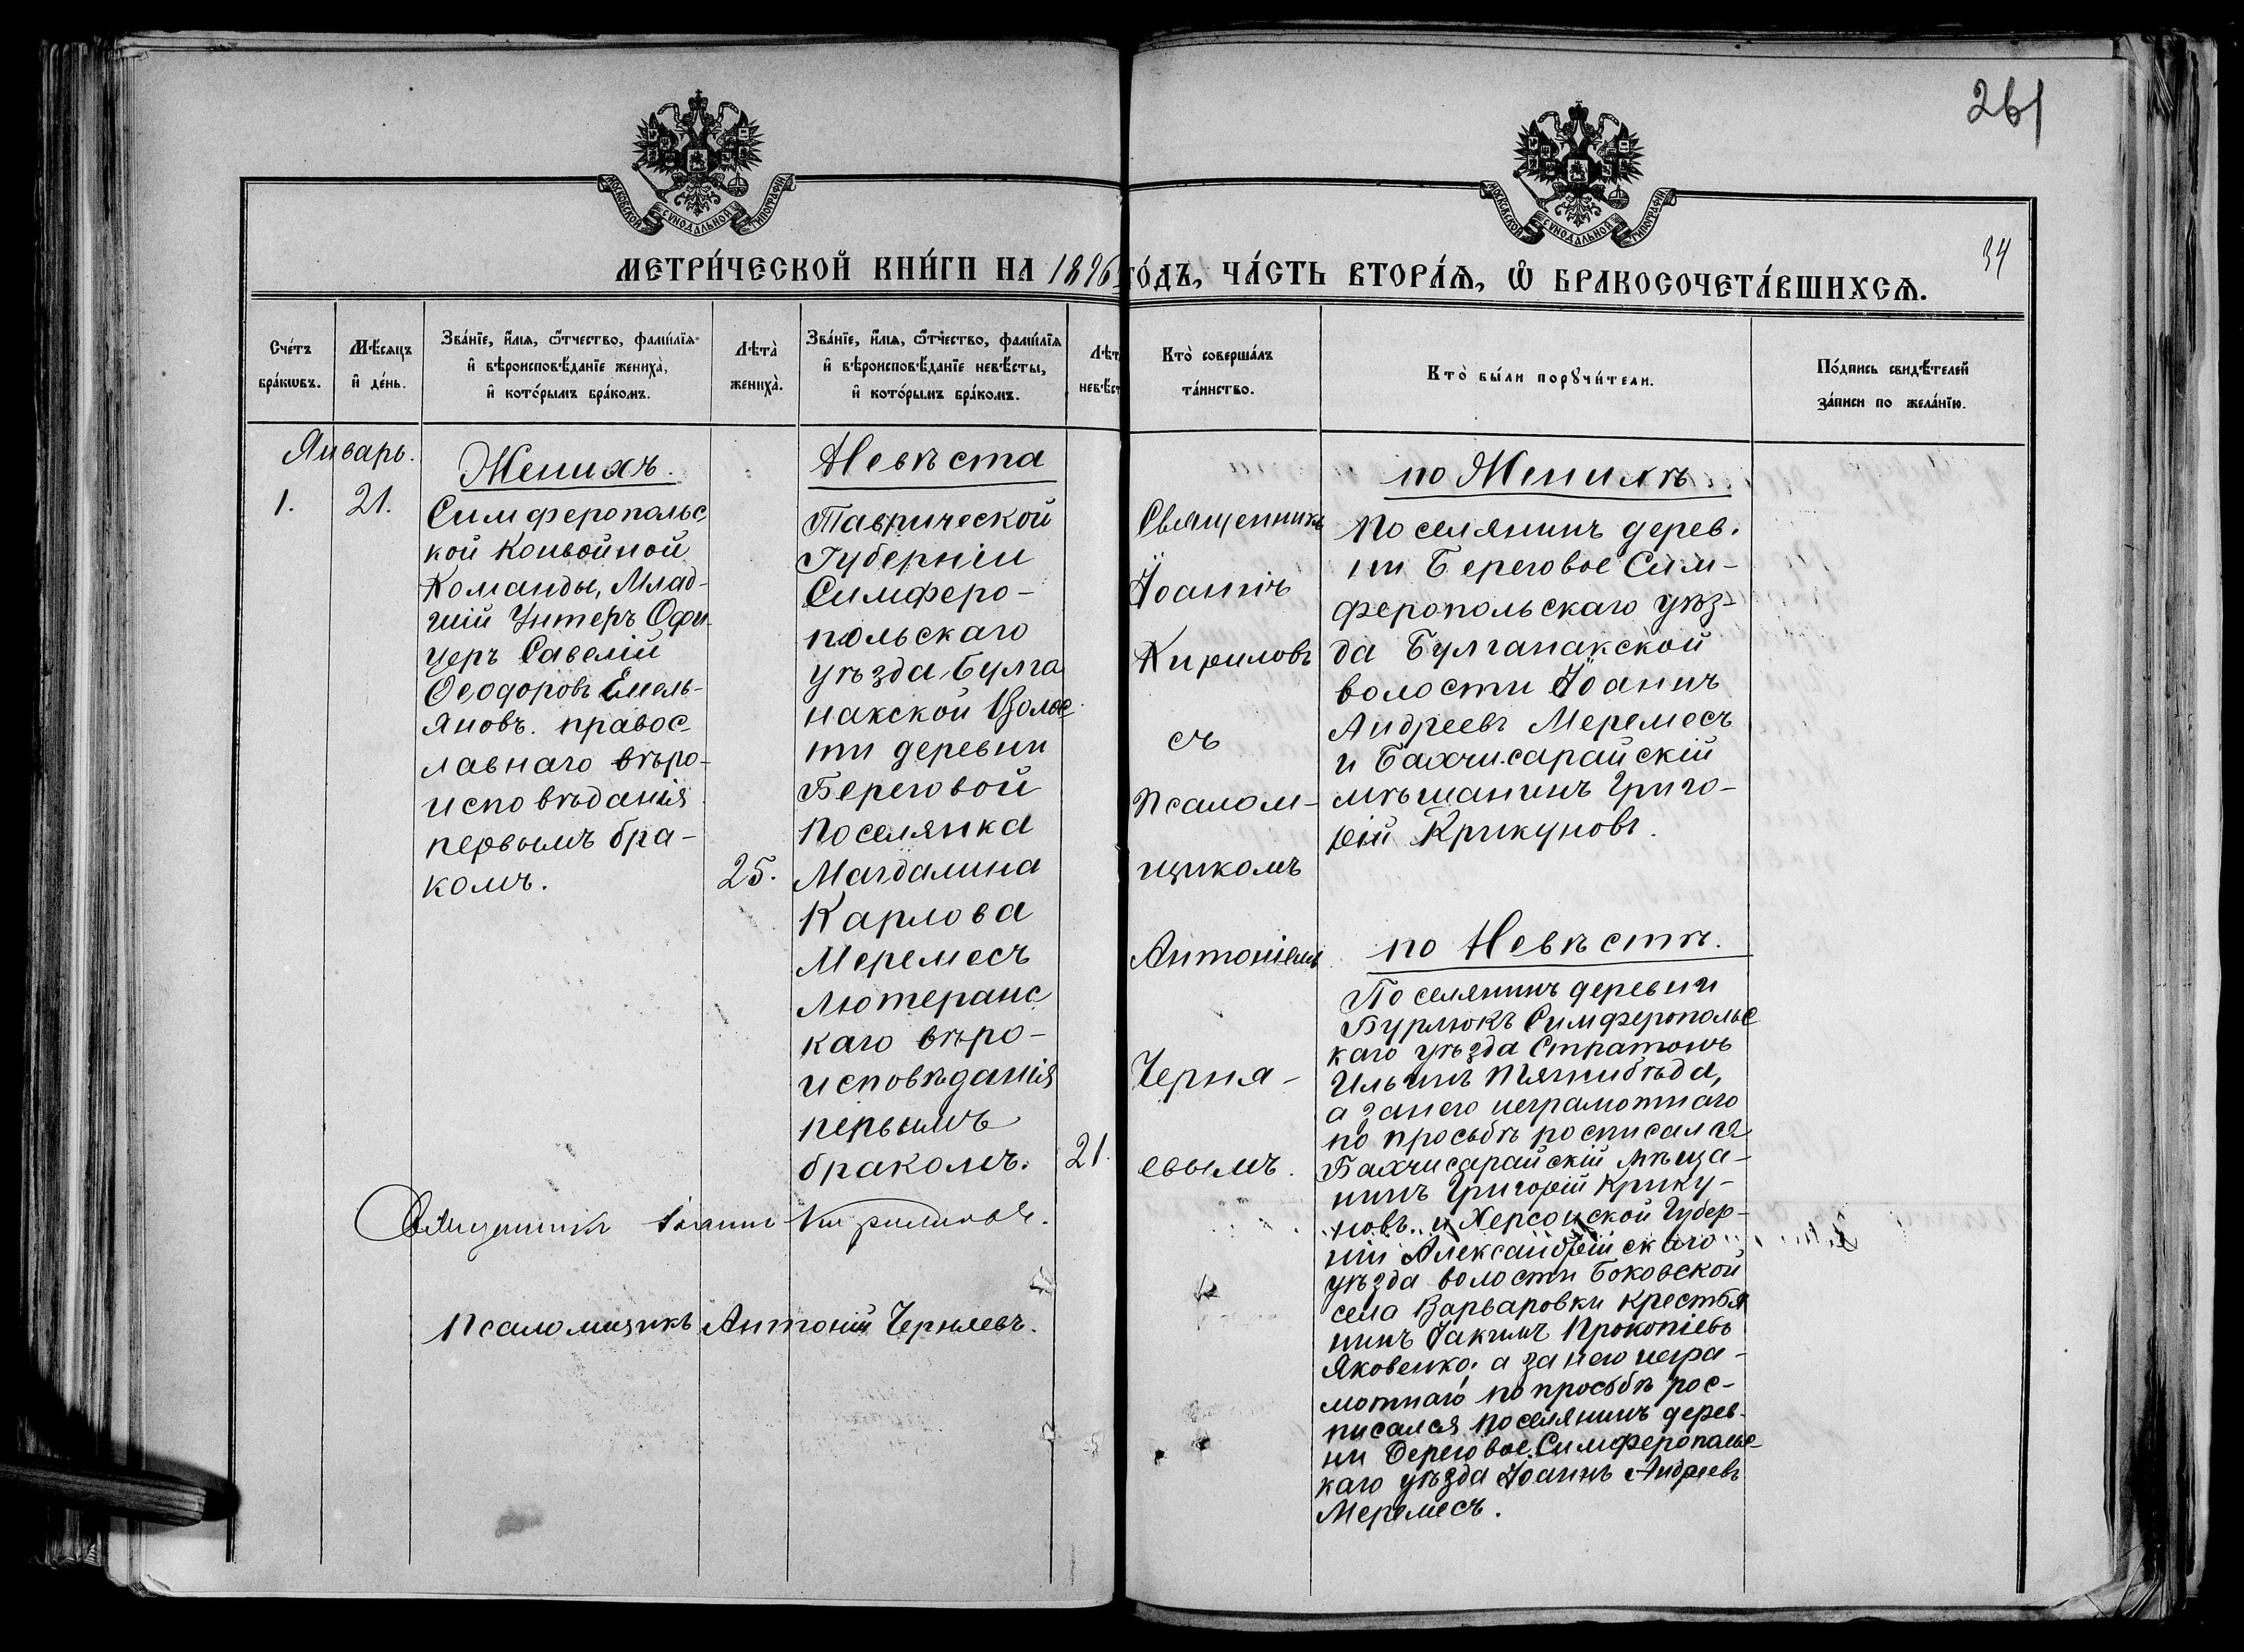 261
34
МОСКОВСКОЙ СѴНОДАЛЬНОЙ ТИПОГРАФІИ
МОСКОВСКОЙ СѴНОДАЛЬНОЙ ТИПОГРАФІИ
МЕТРИ́ЧЕСКОЙ КНИ́ГИ НА 1896 ГО́ДЪ, ЧА́СТЬ ВТОРА́Ѧ, Ѽ БРАКОСОЧЕТА́ВШИХСѦ.
Сче́тъ
бра́кѡвъ.
Мѣ́сяцъ
и҆ де́нь.
Зва́нїе, и҆́мя, ѻ҆́тчество, фами́лїя
и҆ вѣроисповѣ́данїе жениха̀,
и҆ кото́рымъ бра́комъ.
Лѣта̀
жениха̀.
Зва́нїе, и҆́мя, ѻ҆́тчество, фами́лїя
и҆ вѣроисповѣ́данїе невѣ́сты,
и҆ кото́рымъ бра́комъ.
Лѣт
невѣст
Кто̀ соверша́лъ
та́инство.
Кто̀ бы́ли порꙋчи́тели.
По́дпись свидѣ́телей
за́писи по жела́нїю.
Январь.
1.
21.
Женихъ.
Симферопольс
кой Конвойной
Команды, Млад-
шій Унтеръ Офи-
церъ Савелій
Ѳеодоровъ Емель-
яновъ. правос-
лавнаго вѣро-
исповѣданія
первымъ бра-
комъ.
25.
Невѣста
Таврической
Губерніи
Симферо-
польскаго
уѣзда Булга
накской Волос-
ти деревни
Береговой
Поселянка
Магдалина
Карлова
Меремесъ
Лютеранс
каго вѣро-
исповѣданія
первымъ
бракомъ.
21.
Священникъ
Іоаннъ
Кириловъ
съ
Псалом-
щикомъ
Антоніемъ
Черня-
евымъ.
по Женихѣ
Поселянинъ дерев.
ни Береговое Сим-
феропольскаго уѣз-
да Булганакской
волости Іоаннъ
Андреевъ Меремесъ
и Бахчисарайскій
мѣщанинъ Григо-
рій Крикуновъ.
по Невѣстѣ.
Поселянинъ деревни
Бурлюкъ Симферопольс
каго уѣзда Стратонъ
Ильинъ Тягнибѣда,
а за него неграмотнаго
по просьбѣ росписался
Бахчисарайскій Мѣща-
нинъ Григорій Крику-
новъ. и Херсонской Губер-
ніи Александрійскаго
уѣзда волости Боковской
села Варваровки крестья
нинъ Іакимъ Прокопіевъ
Яковенко; а за него негра-
мотнаго по просьбѣ рос-
писался поселянинъ дерев-
ни Береговое Симферопольс-
каго уѣзда Іоаннъ Андреевъ
Меремесъ.
Священникъ Іоаннъ Кириловъ.
Псаломщикъ Антоній Черняевъ.